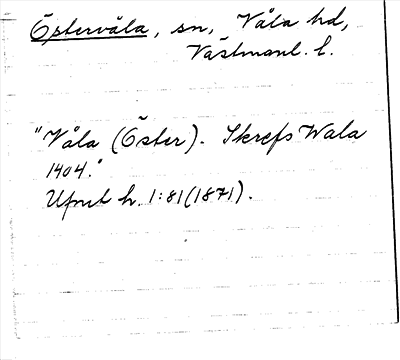 Östervåla, sn, Våla hd,
Västmanl. l.
"Våla (Öster). Skrefs Wala
1404."
Ufmt h. 1:81(1871).